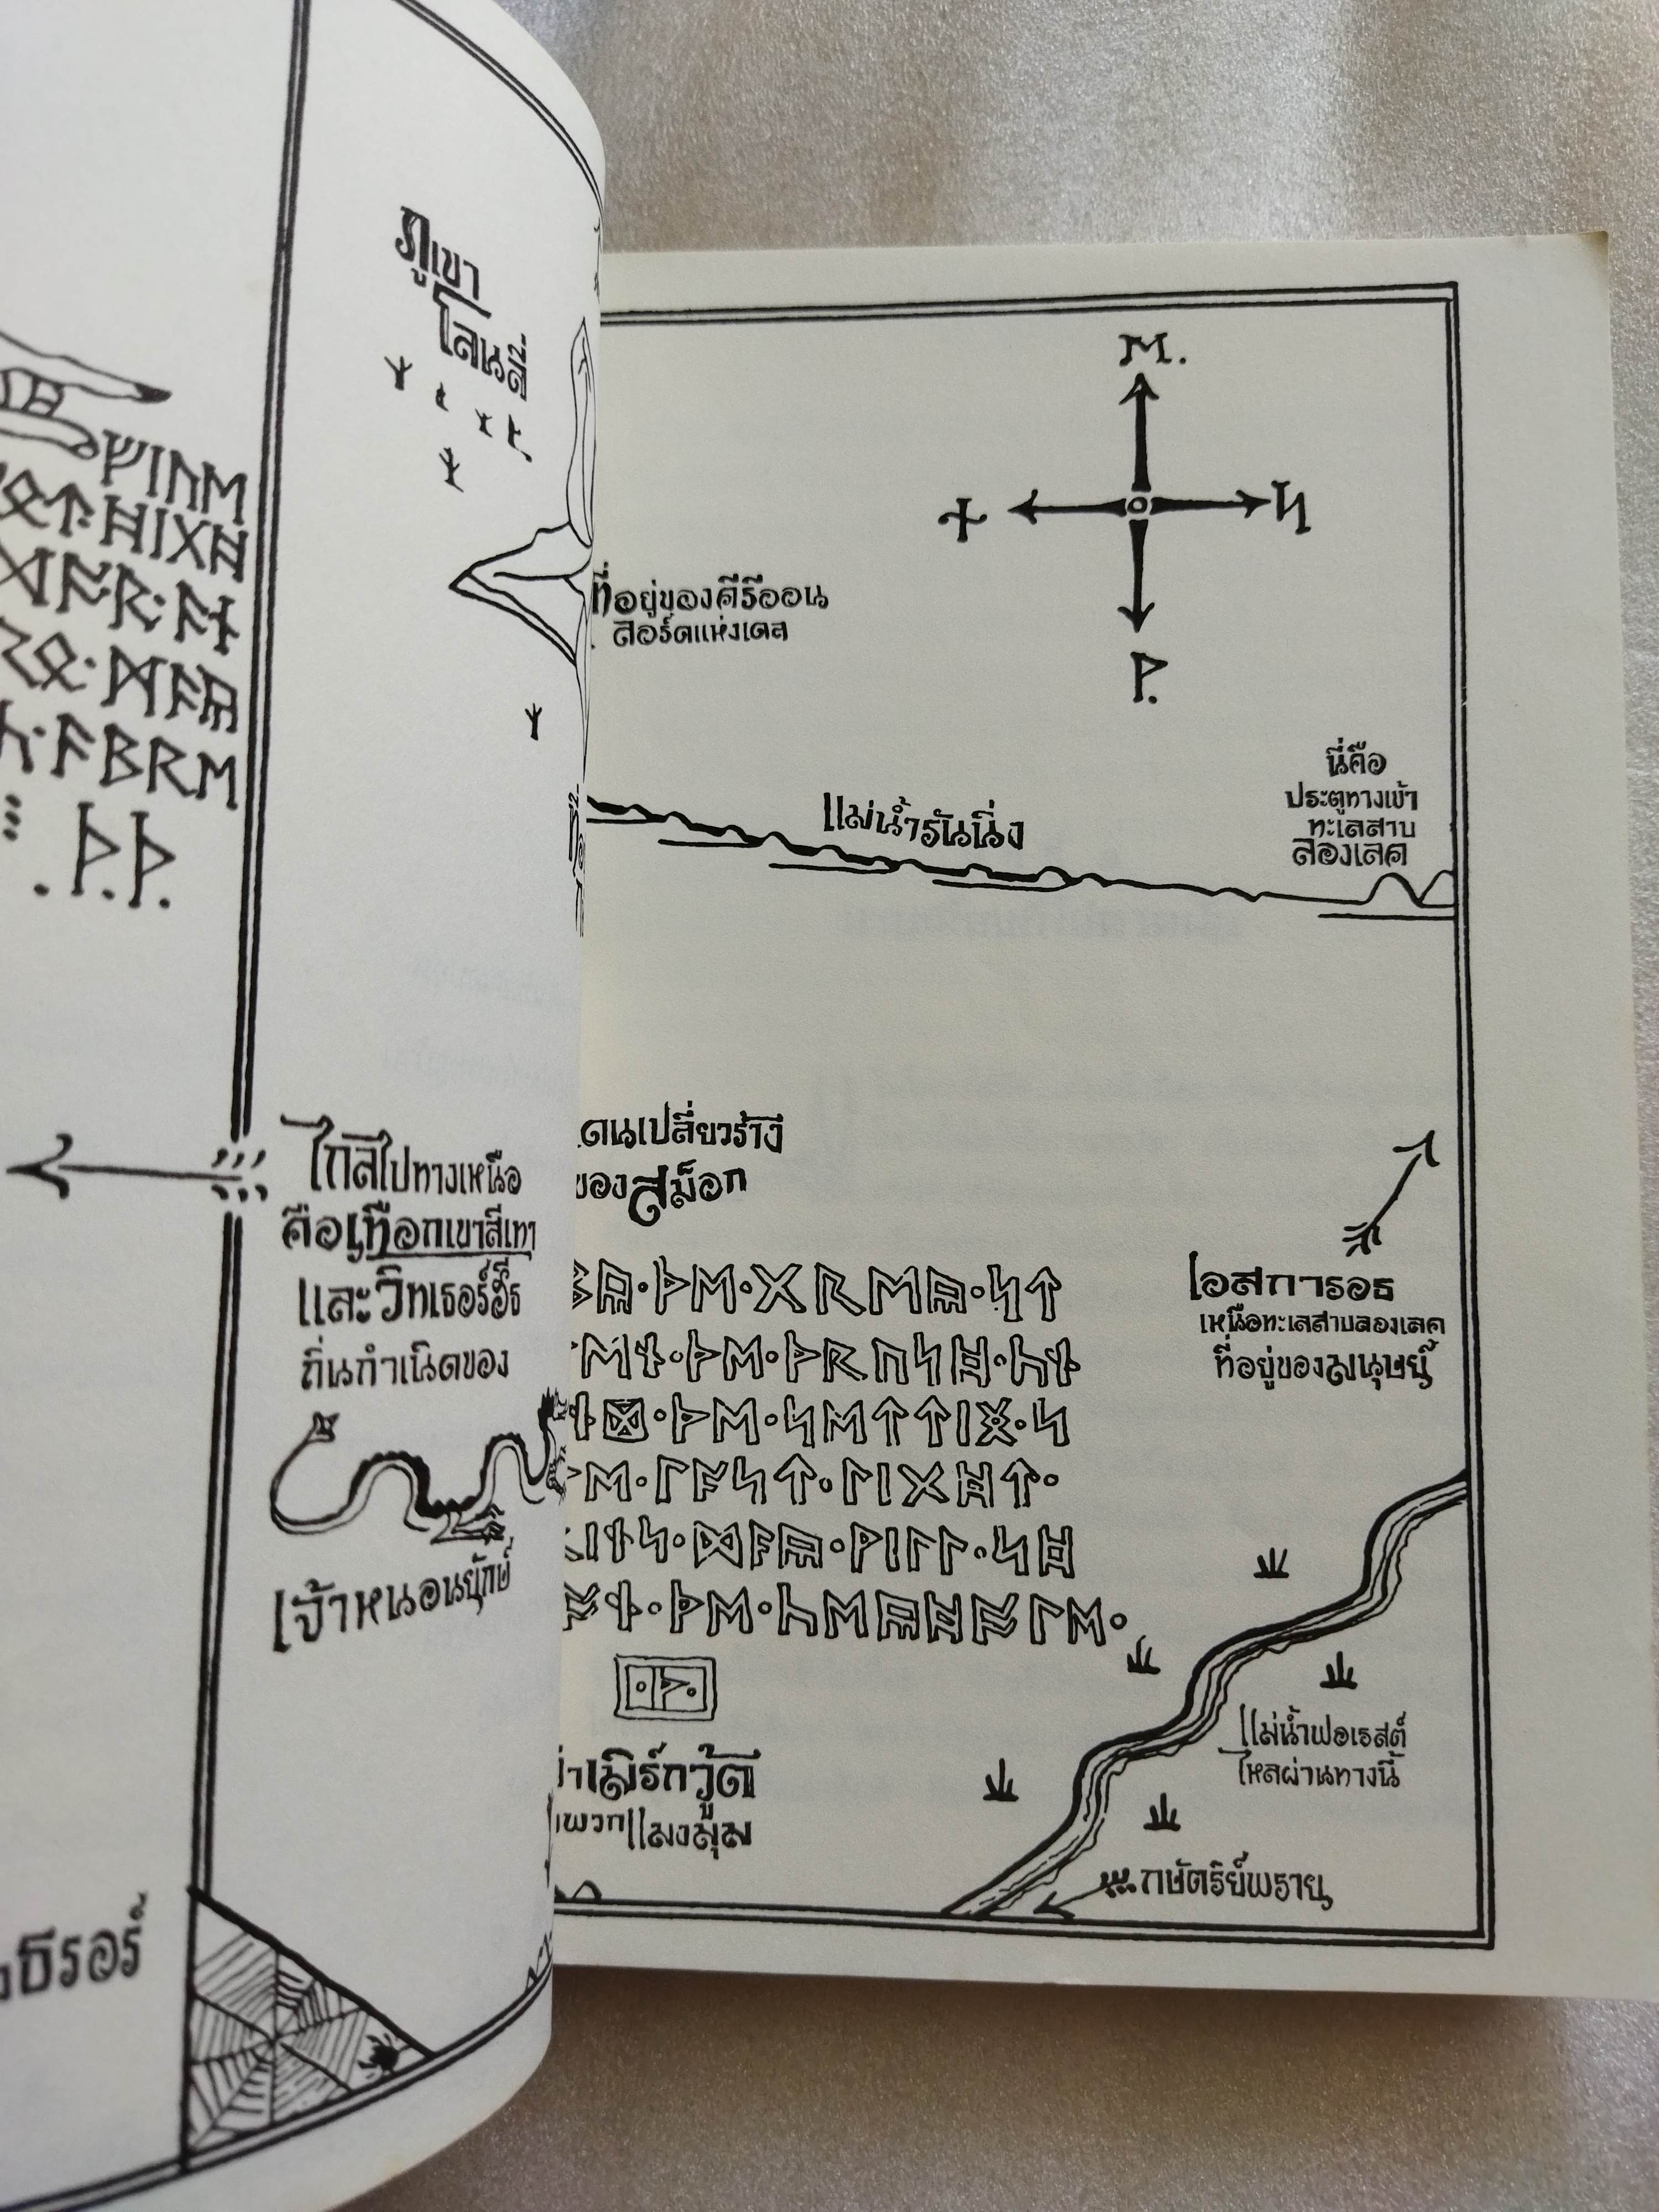 ᚠᛁᚢᛖ
ᛏ·ᚻᛁᚷᚻ
ᚱ·ᚪᚾ
ᛗᚪᚣ
ᚪᛒᚱᛖ
.ᚦ.ᚦ.
ธรอร์
ภูเขา
โลนลี่
ไกลไปทางเหนือ
คือเทือกเขาสีเทา
และวิทเธอร์ฮีธ
ถิ่นกำเนิดของ
เจ้าหนอนยักษ์
M.
ᛋ
P.
ที่อยู่ของคีรีออน
ลอร์ดแห่งเดล
แม่น้ำรันนิ่ง
นี่คือ
ประตูทางเข้า
ทะเลสาบ
ลองเลค
แดนเปลี่ยวร้าง
ของสม็อก
ᛒᚣ·ᚦᛖ·ᚷᚱᛖᚣ·ᛋᛏ
ᛖᚾ·ᚦᛖ·ᚦᚱᚢᛋᚻ·ᚳᚾ
ᚾᛞ·ᚦᛖ·ᛋᛖᛏᛏᛁᛝ·ᛋ
ᛖ·ᛚᚪᛋᛏ·ᛚᛁᚷᚻᛏ·
ᛁᚾᛋ·ᛞᚪᚣ·ᚹᛁᛚᛚ·ᛋᚻ
ᚩᚾ·ᚦᛖ·ᚳᛖᚣᚻᚩᛚᛖ·
·ᚦ·
เอสการอธ
เหนือทะเลสาบลองเลค
ที่อยู่ของมนุษย์
ป่าเมิร์กวู้ด
พวกแมงมุม
แม่น้ำฟอเรสต์
ไหลผ่านทางนี้
กษัตริย์พราย